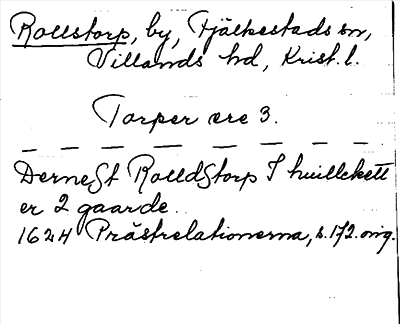 Rollstorp, by, Fjälkestads sn,
Villands hd, Krist. l.
Torper ere 3.
Dernest Rolldstorp I huilckett
er 2 gaarde.
1624 Prästrelationerna, s. 172. orig.